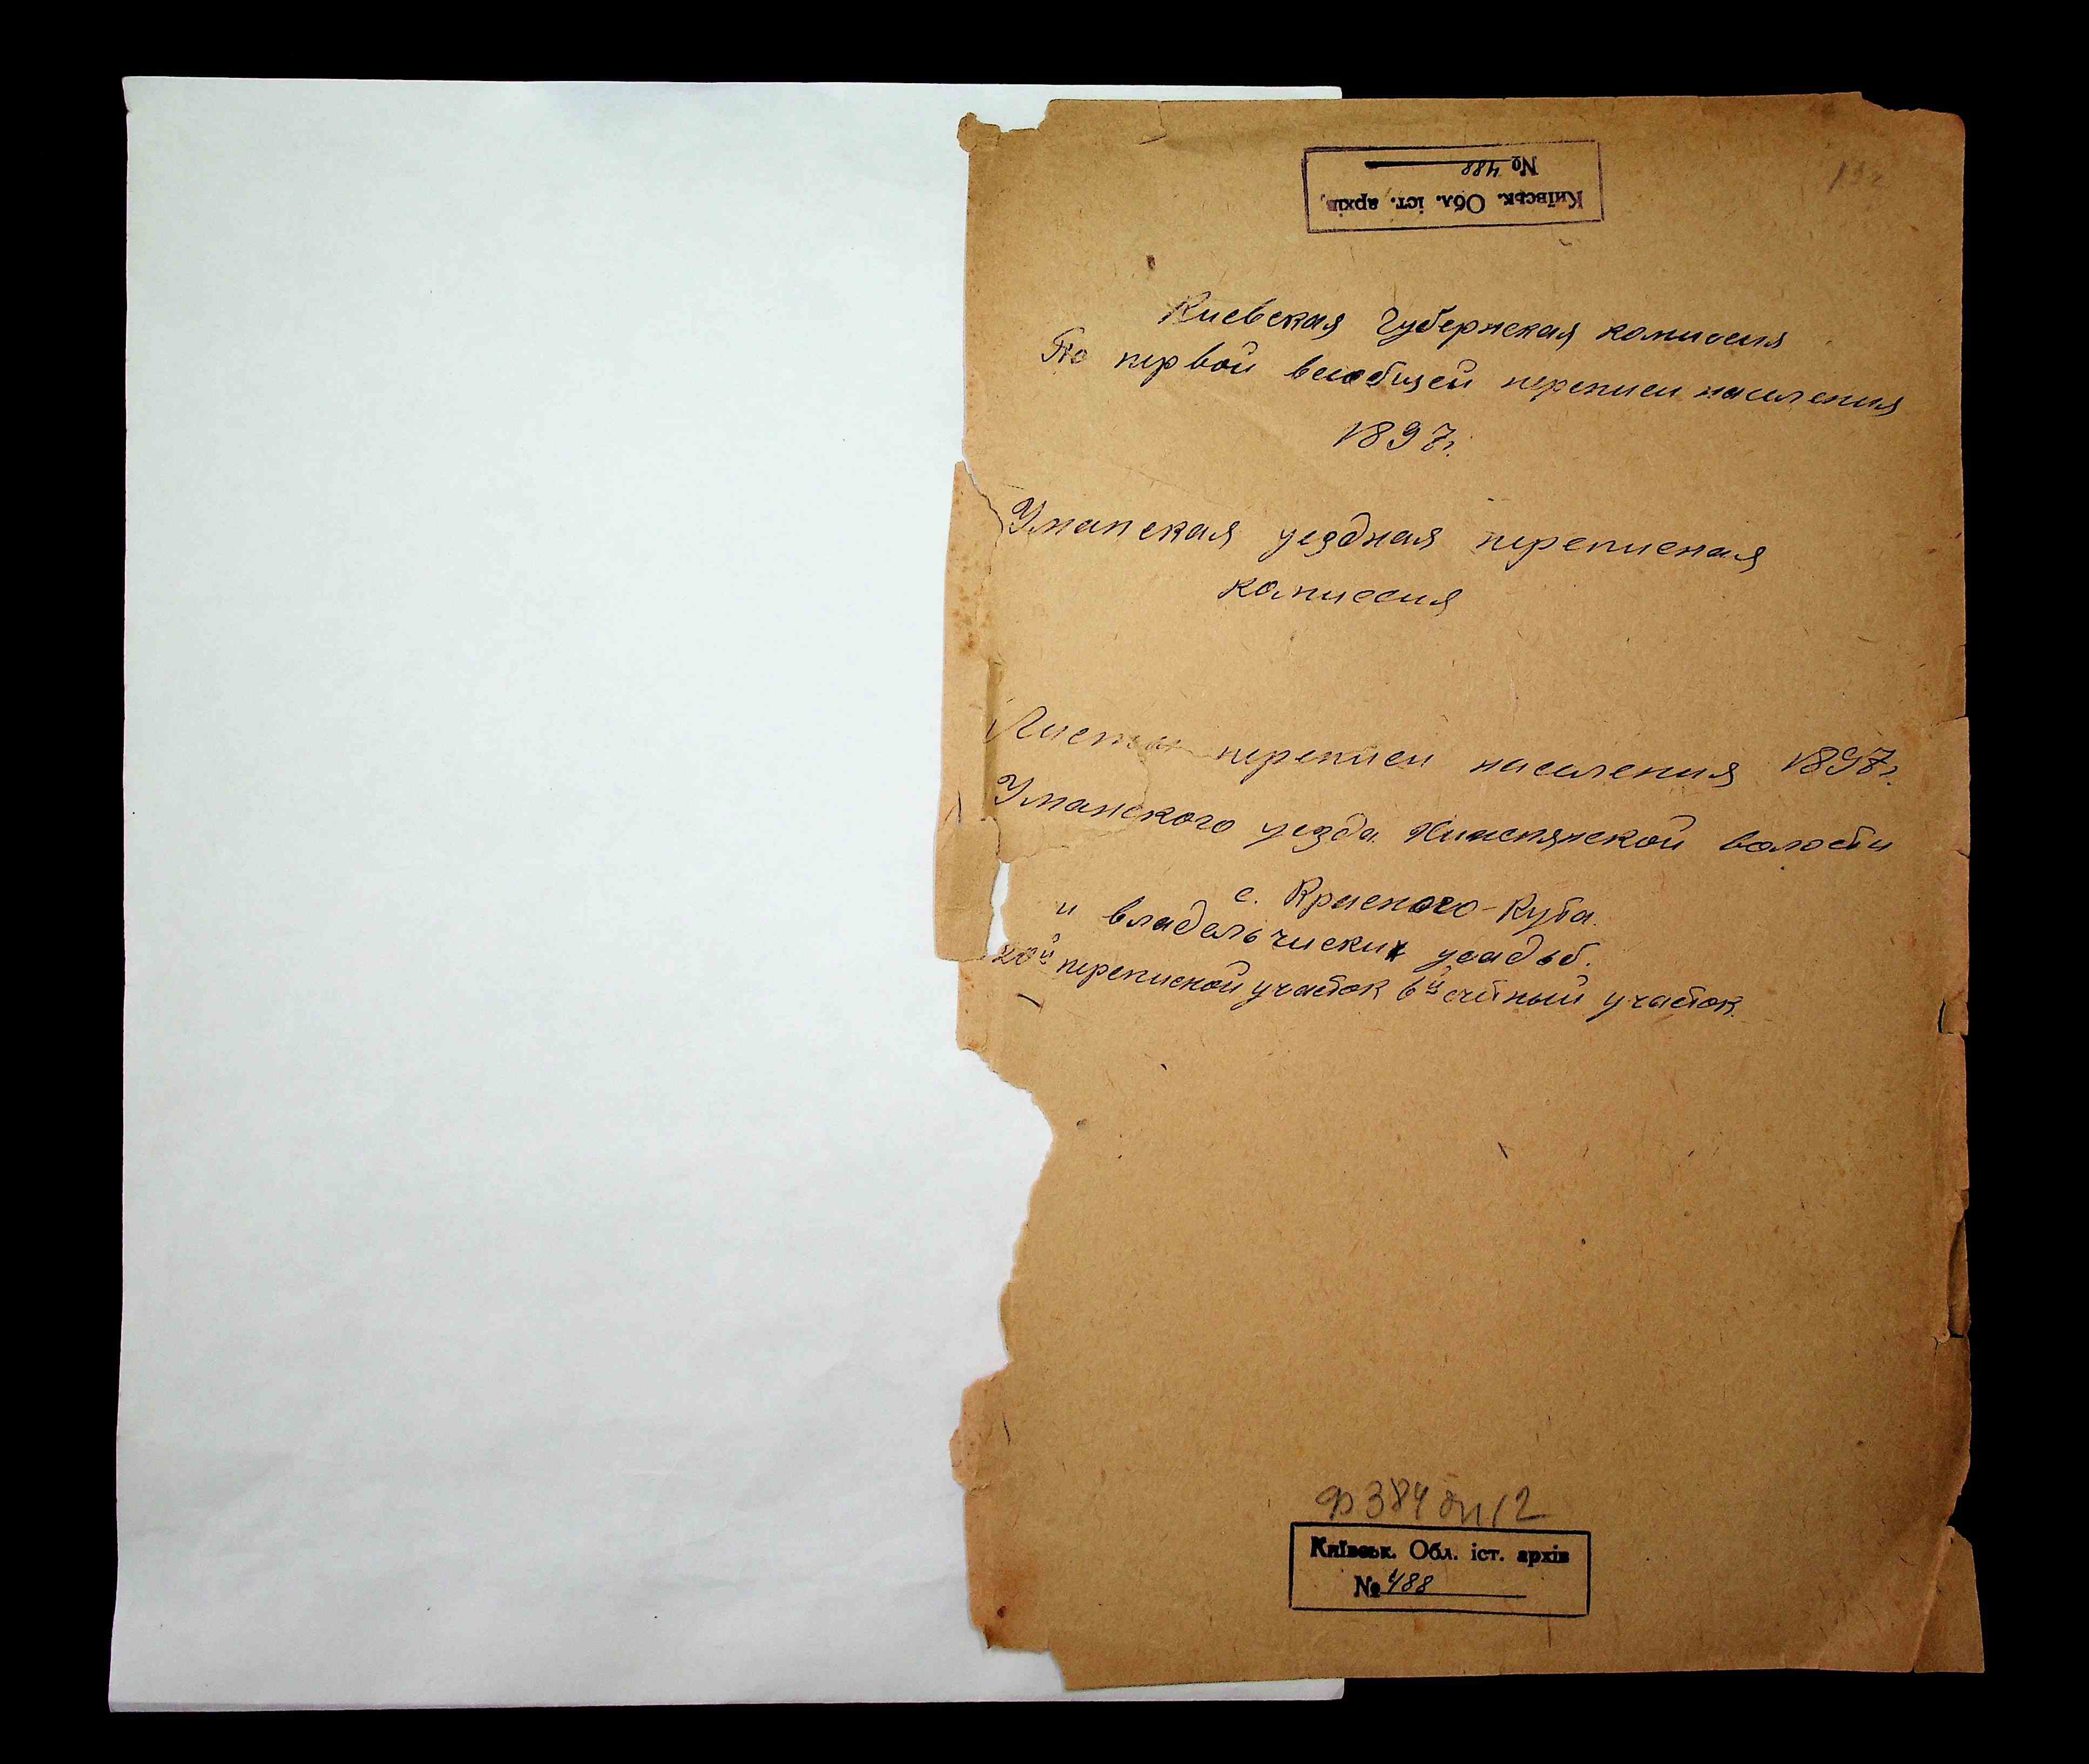 Київськ. Обл. іст. архів
№ 488
Киевская Губернская комиссия
По первой всеобщей переписи населения
1897г.
Уманская уездная переписная
комиссия
Листы переписи населения 1897г.
Уманского уезда Хижнянской волости
с. Красного-Кута.
и владельчиских усадьб.
20й переписной участок 6й счётный участок.
Ф384 оп12
Київськ. Обл. іст. архів
№ 488